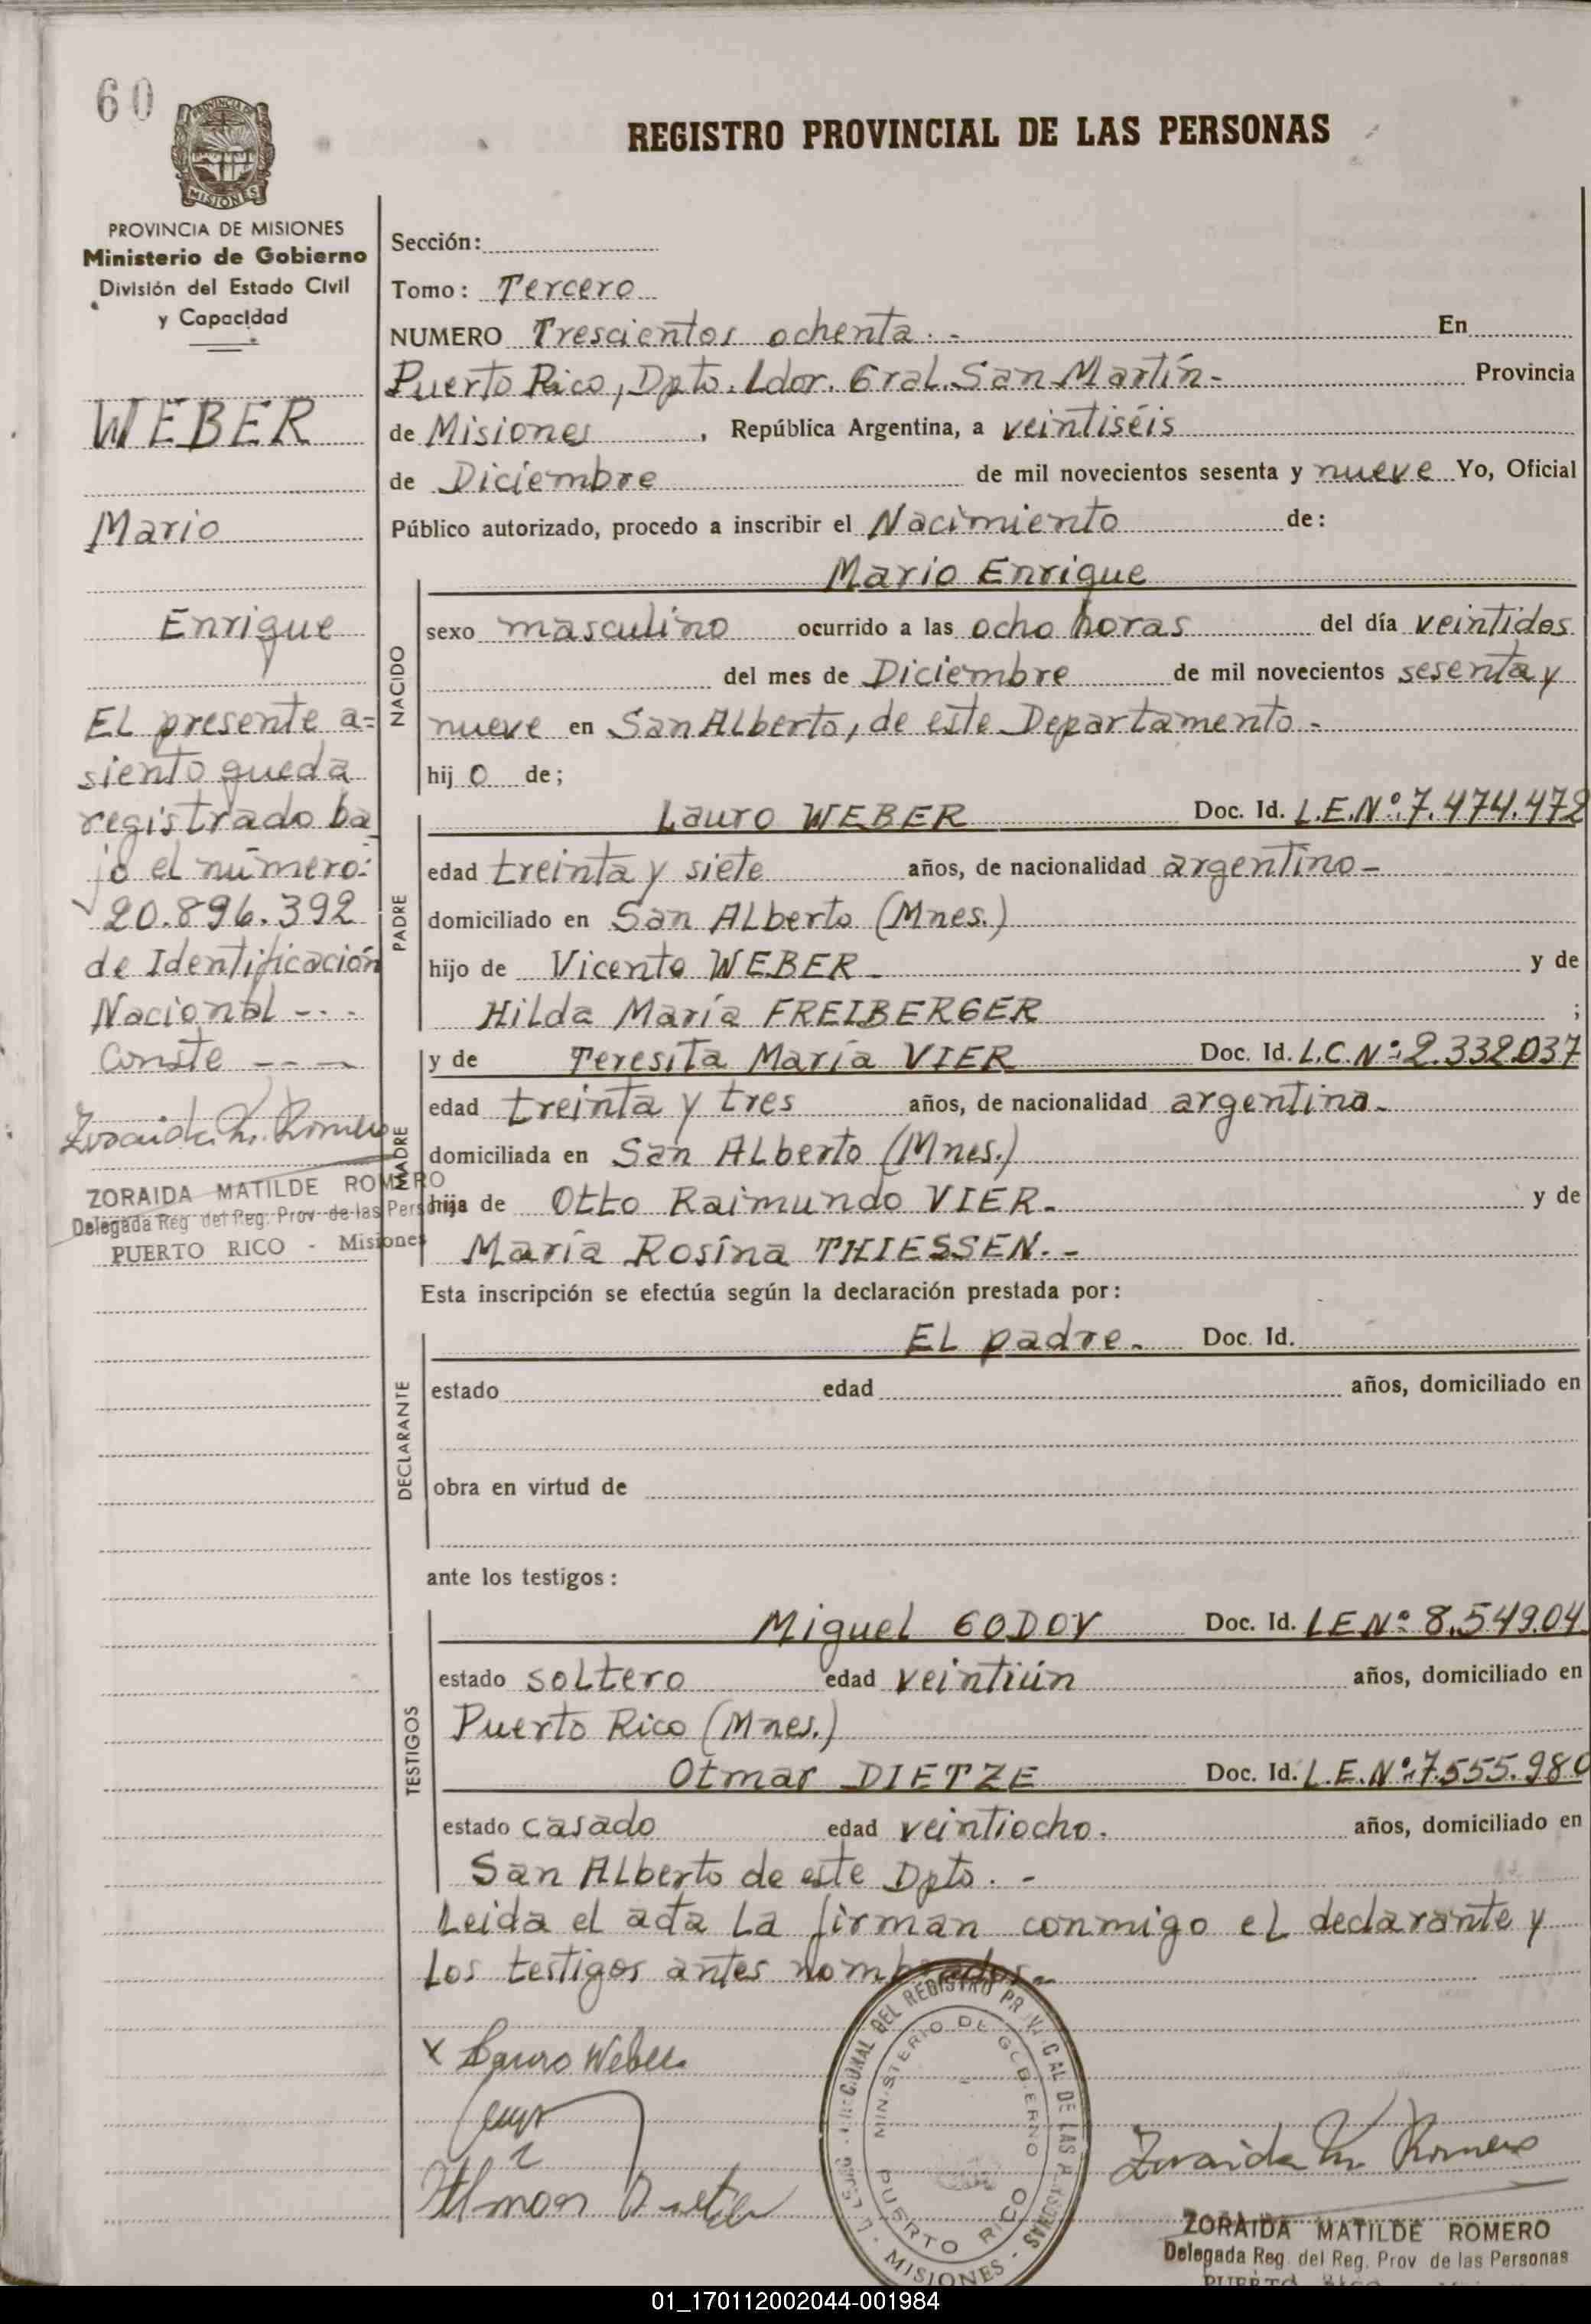 60
REGISTRO PROVINCIAL DE LAS PERSONAS
MISIONES
PROVINCIA DE MISIONES
Ministerio de Gobierno
División del Estado Civil
y Capacidad
WEBER
Mario
Enrique
EL presente a=
siento queda
registrado ba
jo el número:
20.896.392
de Identificación
Nacional - - -
Conste - - -
Zoraida M. Romero
ZORAIDA MATILDE ROMERO
Delegada Reg. del Reg. Prov. de las Personas
PUERTO RICO - Misiones
Sección:
Tomo: Tercero
NUMERO Trescientos ochenta. - En
Puerto Rico, Dpto. Ldor. Gral. San Martín - Provincia
de Misiones, República Argentina, a veintiséis
de Diciembre de mil novecientos sesenta y nueve Yo, Oficial
Público autorizado, procedo a inscribir el Nacimiento de:
Mario Enrique
NACIDO
sexo masculino ocurrido a las ocho horas del día veintidos
del mes de Diciembre de mil novecientos sesenta y
nueve en San Alberto, de este Departamento -
hijo de;
PADRE
Lauro WEBER Doc. Id. L.E.Nº:7.474.472
edad treinta y siete años, de nacionalidad argentino -
domiciliado en San Alberto (Mnes.)
hijo de Vicente WEBER - y de
Hilda María FREIBERGER ;
MADRE
y de Teresita María VIER Doc. Id. L.C.Nº:2.332.037
edad treinta y tres años, de nacionalidad argentina -
domiciliada en San Alberto (Mnes.)
hija de Otto Raimundo VIER - y de
María Rosina THIESSEN. -
Esta inscripción se efectúa según la declaración prestada por:
DECLARANTE
EL padre - Doc. Id.
estado edad años, domiciliado en
obra en virtud de
ante los testigos:
TESTIGOS
Miguel GODOY Doc. Id. LE Nº 8.549.04
estado soltero edad veintiún años, domiciliado en
Puerto Rico (Mnes.)
Otmar DIETZE Doc. Id. L.E.Nº:7.555.980
estado casado edad veintiocho. años, domiciliado en
San Alberto de este Dpto. -
Leida el acta la firman conmigo el declarante y
los testigos antes nombrados -
x Lauro Weber
Zoraida M. Romero
REGISTRO PROVINCIAL DE LAS PERSONAS - MISIONES
MINISTERIO DE GOBIERNO
PUERTO RICO
ZORAIDA MATILDE ROMERO
Delegada Reg. del Reg. Prov de las Personas
PUERTO RICO
01_170112002044-001984